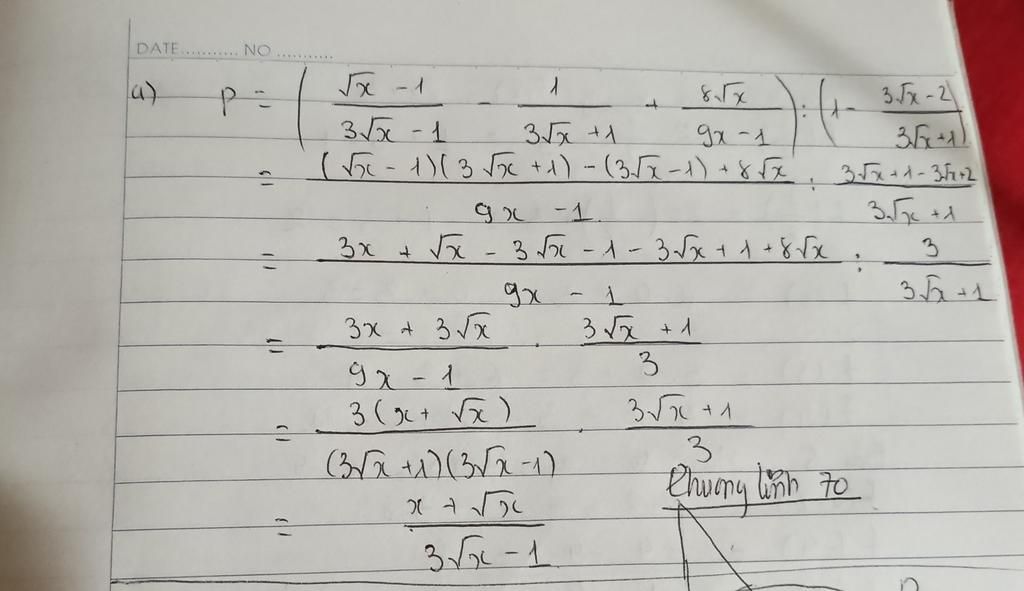 DATE........... NO ...........
a) P = ( (√x - 1)/(3√x - 1) - 1/(3√x + 1) + 8√x/(9x - 1) ) : (1 - (3√x - 2)/(3√x + 1))
= ((√x - 1)(3√x + 1) - (3√x - 1) + 8√x)/(9x - 1) : (3√x + 1 - 3√x + 2)/(3√x + 1)
= (3x + √x - 3√x - 1 - 3√x + 1 + 8√x)/(9x - 1) : 3/(3√x + 1)
= (3x + 3√x)/(9x - 1) . (3√x + 1)/3
= 3(x + √x)/((3√x + 1)(3√x - 1)) . (3√x + 1)/3
= (x + √x)/(3√x - 1)
Phương lĩnh 70